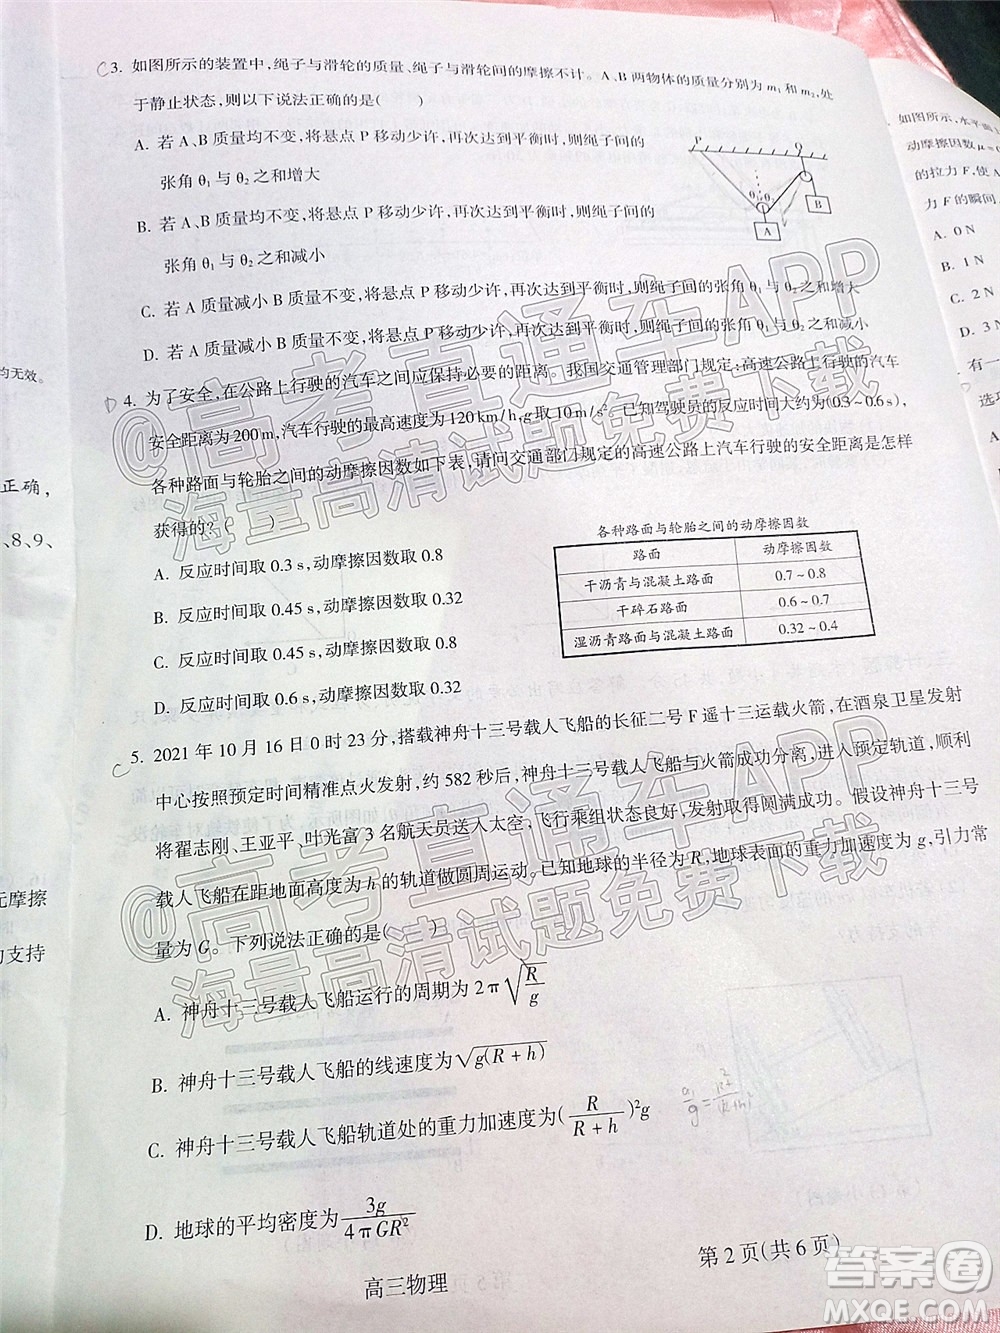 C3. 如图所示的装置中,绳子与滑轮的质量、绳子与滑轮间的摩擦不计。A、B 两物体的质量分别为 m₁ 和 m₂,处
于静止状态,则以下说法正确的是( )
A. 若 A、B 质量均不变,将悬点 P 移动少许,再次达到平衡时,则绳子间的
张角 θ₁ 与 θ₂ 之和增大
B. 若 A、B 质量均不变,将悬点 P 移动少许,再次达到平衡时,则绳子间的
张角 θ₁ 与 θ₂ 之和减小
C. 若 A 质量减小 B 质量不变,将悬点 P 移动少许,再次达到平衡时,则绳子间的张角 θ₁ 与 θ₂ 之和增大
D. 若 A 质量减小 B 质量不变,将悬点 P 移动少许,再次达到平衡时,则绳子间的张角 θ₁ 与 θ₂ 之和减小
P
Q
θ₁ θ₂
A
B
D 4. 为了安全,在公路上行驶的汽车之间应保持必要的距离。我国交通管理部门规定:高速公路上行驶的汽车
安全距离为 200 m,汽车行驶的最高速度为 120 km/h,g 取 10 m/s²。已知驾驶员的反应时间大约为(0.3~0.6 s),
各种路面与轮胎之间的动摩擦因数如下表,请问交通部门规定的高速公路上汽车行驶的安全距离是怎样
获得的?( )
A. 反应时间取 0.3 s,动摩擦因数取 0.8
B. 反应时间取 0.45 s,动摩擦因数取 0.32
C. 反应时间取 0.45 s,动摩擦因数取 0.8
D. 反应时间取 0.6 s,动摩擦因数取 0.32
各种路面与轮胎之间的动摩擦因数
路面 动摩擦因数
干沥青与混凝土路面 0.7~0.8
干碎石路面 0.6~0.7
湿沥青路面与混凝土路面 0.32~0.4
C 5. 2021 年 10 月 16 日 0 时 23 分,搭载神舟十三号载人飞船的长征二号 F 遥十三运载火箭,在酒泉卫星发射
中心按照预定时间精准点火发射,约 582 秒后,神舟十三号载人飞船与火箭成功分离,进入预定轨道,顺利
将翟志刚、王亚平、叶光富 3 名航天员送入太空,飞行乘组状态良好,发射取得圆满成功。假设神舟十三号
载人飞船在距地面高度为 h 的轨道做圆周运动。已知地球的半径为 R,地球表面的重力加速度为 g,引力常
量为 G。下列说法正确的是( )
A. 神舟十三号载人飞船运行的周期为 2π√(R/g)
B. 神舟十三号载人飞船的线速度为√g(R+h)
C. 神舟十三号载人飞船轨道处的重力加速度为(R/(R+h))²g
D. 地球的平均密度为 3g/(4πGR²)
高三物理
第 2 页(共 6 页)
均无效。
正确,
、8、9、
无摩擦
的支持
如图所示,水平面
动摩擦因数 μ=0
的拉力 F,使 A
力 F 的瞬间,
A. 0 N
B. 1 N
C. 2 N
D. 3 N
有一
选项
@高考直通车APP
海量高清试题免费下载
@高考直通车APP
海量高清试题免费下载
答案圈
MXQE.COM